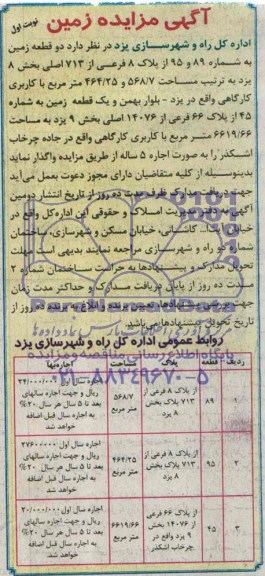 آگهی مزایده زمین
نوبت اول
اداره کل راه و شهرسازی یزد در نظر دارد دو قطعه زمین
به شماره ۸۹ و ۹۵ از پلاک ۸ فرعی از ۷۱۳ اصلی بخش ۸
یزد به ترتیب مساحت ۵۶۸/۷ و ۴۶۴/۲۵ متر مربع با کاربری
کارگاهی واقع در یزد - بلوار بهمن و یک قطعه زمین به شماره
۴۵ از پلاک ۶۶ فرعی از ۱۴۰۷۶ اصلی بخش ۹ یزد به مساحت
۶۶۱۹/۶۶ متر مربع با کاربری کارگاهی واقع در جاده چرخاب
اشکذر را به صورت اجاره ۵ ساله از طریق مزایده واگذار نماید
بدینوسیله از کلیه متقاضیان دارای مجوز دعوت بعمل می‌آید
جهت دریافت مدارک ظرف مدت ده روز از تاریخ انتشار دومین
آگهی به دفتر مدیریت املاک و حقوقی این اداره کل واقع در
خیابان آیت‌ا... کاشانی، خیابان مسکن و شهرسازی، ساختمان
شماره دو راه و شهرسازی مراجعه نمایند بدیهی است مهلت
تحویل مدارک و پیشنهادها به حراست ساختمان شماره ۲
مدت ده روز از پایان دریافت مدارک و حداکثر مدت زمان
تعیین برنده و ابلاغ به برنده ده روز از
تاریخ تحویل پیشنهادها می‌باشد.
روابط عمومی اداره کل راه و شهرسازی یزد
پایگاه اطلاع رسانی مناقصه و مزایده
۰۲۱-۸۸۳۴۹۶۷۰-۵
ردیف قطعه پلاک مساحت اجاره‌بها
۱ ۸۹ از پلاک ۸ فرعی از ۷۱۳ پلاک بخش ۸ یزد ۵۶۸/۷ متر مربع اجاره سال اول ۲۴/۰۰۰/۰۰۰ ریال و جهت اجاره سالهای بعد تا ۵ سال هر سال ۲۰٪ به اجاره سال قبل اضافه خواهد شد.
۲ ۹۵ از پلاک ۸ فرعی از ۷۱۳ پلاک بخش ۸ یزد ۴۶۴/۲۵ متر مربع اجاره سال اول ۲۷۶۰۰۰۰۰ ریال و جهت اجاره سالهای بعد تا ۵ سال هر سال ۲۰٪ به اجاره سال قبل اضافه خواهد شد.
۳ ۴۵ از پلاک ۶۶ فرعی از ۱۴۰۷۶ بخش ۹ یزد واقع در چرخاب اشکذر ۶۶۱۹/۶۶ متر مربع اجاره سال اول ۲۰/۰۰۰/۰۰۰ ریال و جهت اجاره سالهای بعد تا ۵ سال هر سال ۲۰٪ به اجاره سال قبل اضافه خواهد شد.